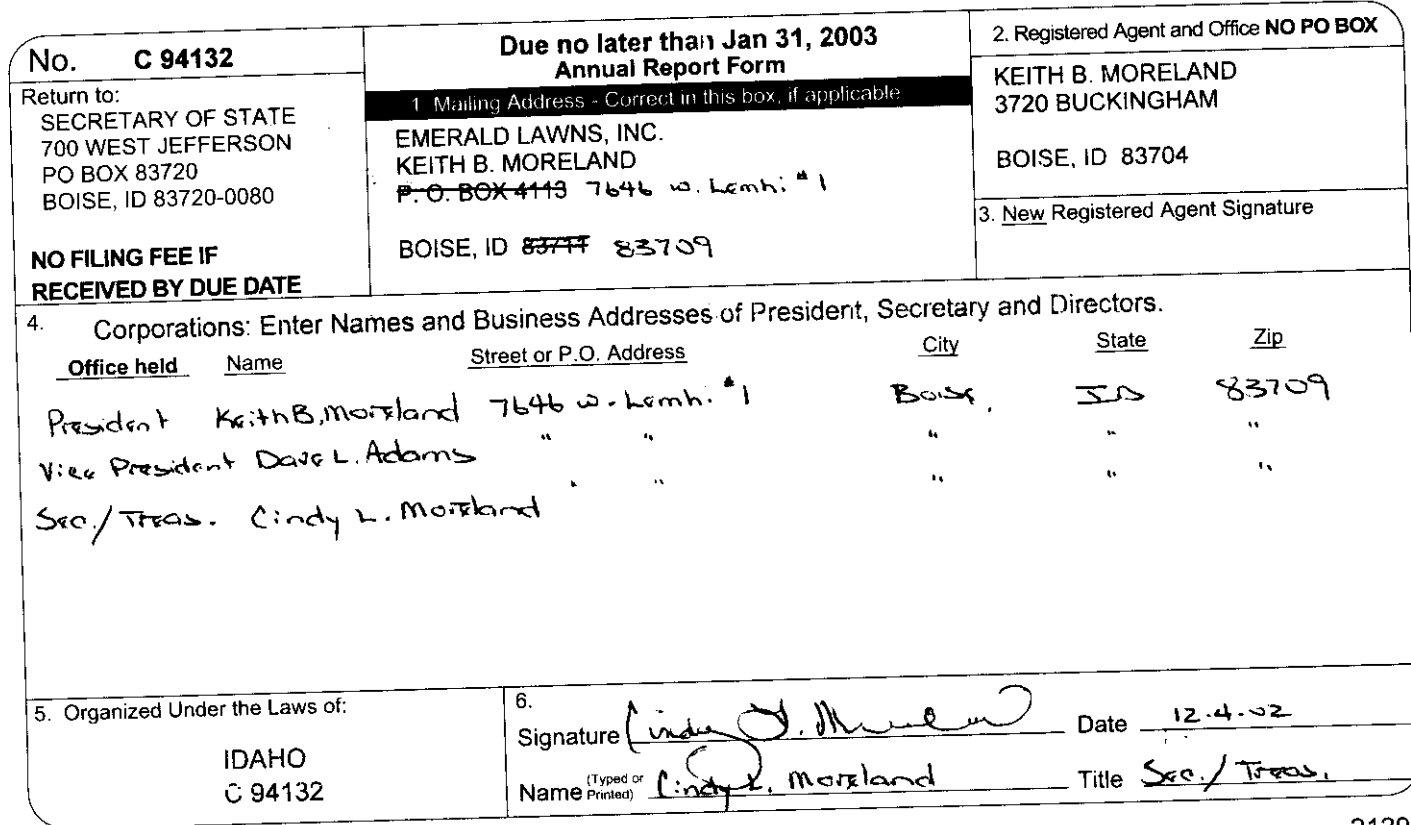 No. C 94132
Return to:
SECRETARY OF STATE
700 WEST JEFFERSON
PO BOX 83720
BOISE, ID 83720-0080
NO FILING FEE IF
RECEIVED BY DUE DATE
Due no later than Jan 31, 2003
Annual Report Form
1 Mailing Address - Correct in this box, if applicable
EMERALD LAWNS, INC.
KEITH B. MORELAND
P. O. BOX 4113 7646 W. Lemhi #1
BOISE, ID 83711 83709
2. Registered Agent and Office NO PO BOX
KEITH B. MORELAND
3720 BUCKINGHAM
BOISE, ID 83704
3. New Registered Agent Signature
4. Corporations: Enter Names and Business Addresses of President, Secretary and Directors.
Office held Name Street or P.O. Address City State Zip
President Keith B, Moreland 7646 W. Lemhi #1 Boise, ID 83709
Vice President Dave L. Adams " " " " "
Sec./Treas. Cindy L. Moreland " " " " "
5. Organized Under the Laws of:
IDAHO
C 94132
6.
Signature Cindy L. Moreland Date 12.4.02
Name (Typed or Printed) Cindy L. Moreland Title Sec./Treas.